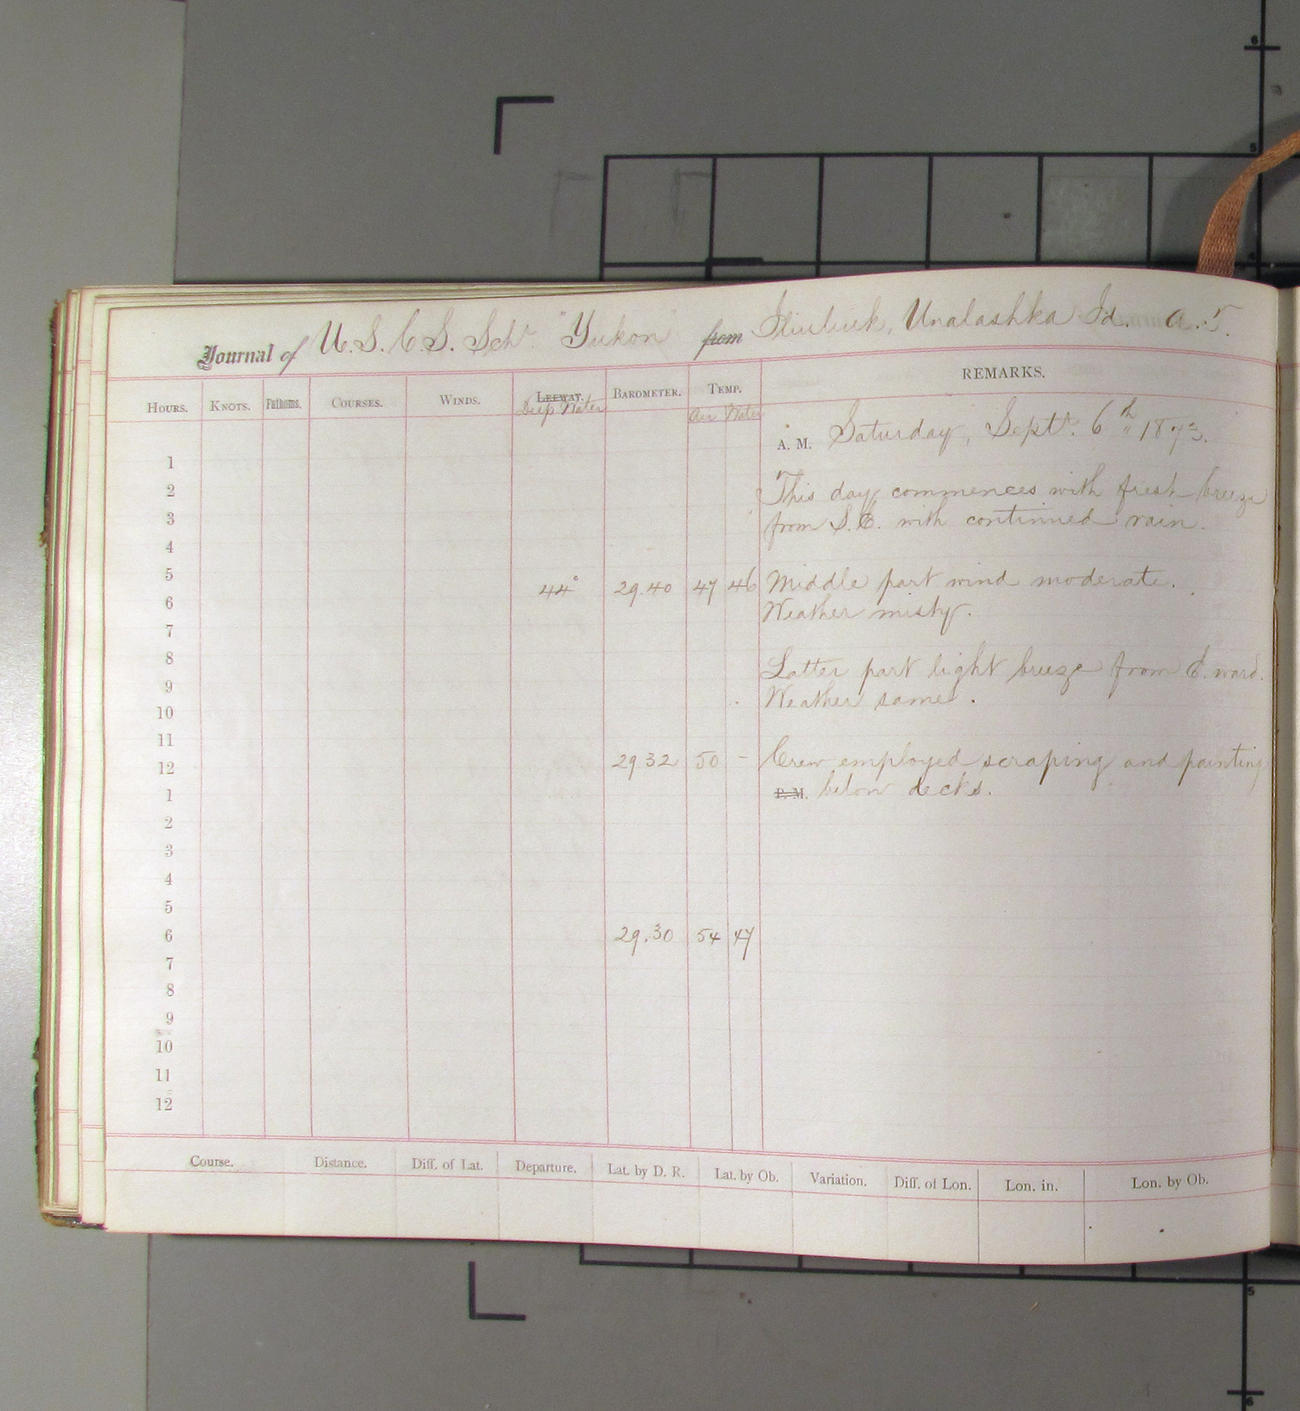 Journal of U.S.C.S. Schr. "Yukon" from Iliuliuk, Unalashka Id. A.T.
HOURS. KNOTS. Fathoms. COURSES. WINDS. LEEWAY. BAROMETER. TEMP. REMARKS.
Deep Water Air Water
A. M. Saturday, Septr. 6th 1873.
1
2 This day commences with fresh breeze
3 from S.E. with continued rain.
4
5 44° 29.40 47 46 Middle part wind moderate.
6 Weather misty.
7
8 Latter part light breeze from E.ward.
9 Weather same.
10
11
12 29 32 50 - Crew employed scraping and painting
1 P. M. below decks.
2
3
4
5
6 29.30 54 47
7
8
9
10
11
12
Course. Distance. Diff. of Lat. Departure. Lat. by D. R. Lat. by Ob. Variation. Diff. of Lon. Lon. in. Lon. by Ob.